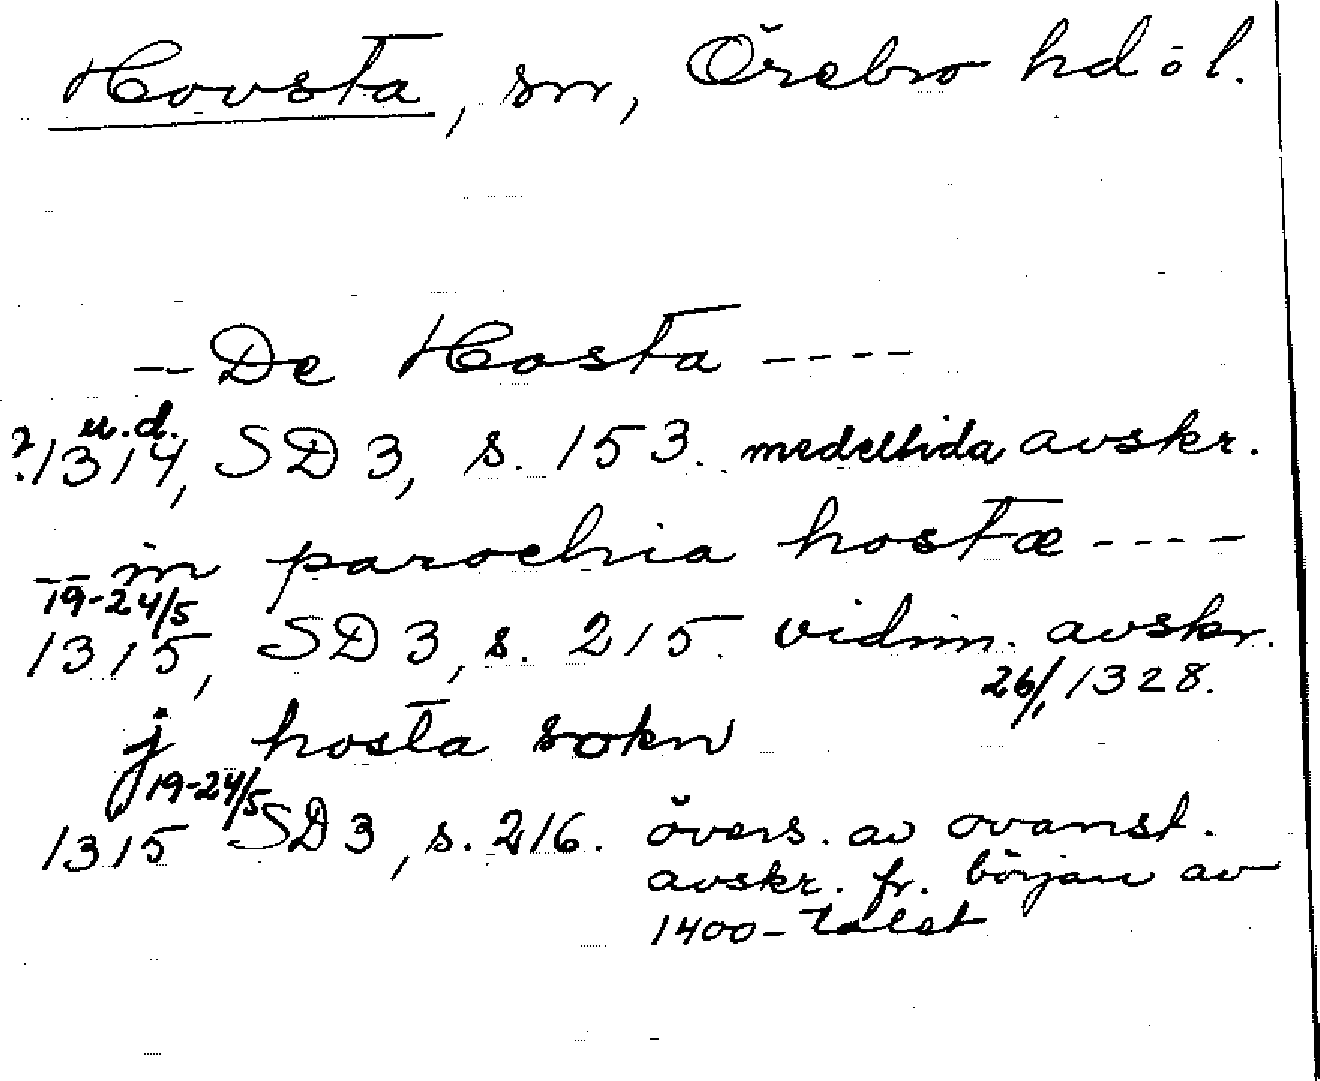 Hovsta, sn, Örebro hd o l.
-- De Hosta ----
u.d.
?1314, SD 3, s. 153. medeltida avskr.
-- in parochia hostæ ----
19-24/5
1315, SD 3, s. 215. vidim. avskr.
26/1 1328.
j hosta sokn
19-24/5
1315 SD 3, s. 216. övers. av ovanst.
avskr. fr. början av
1400-talet